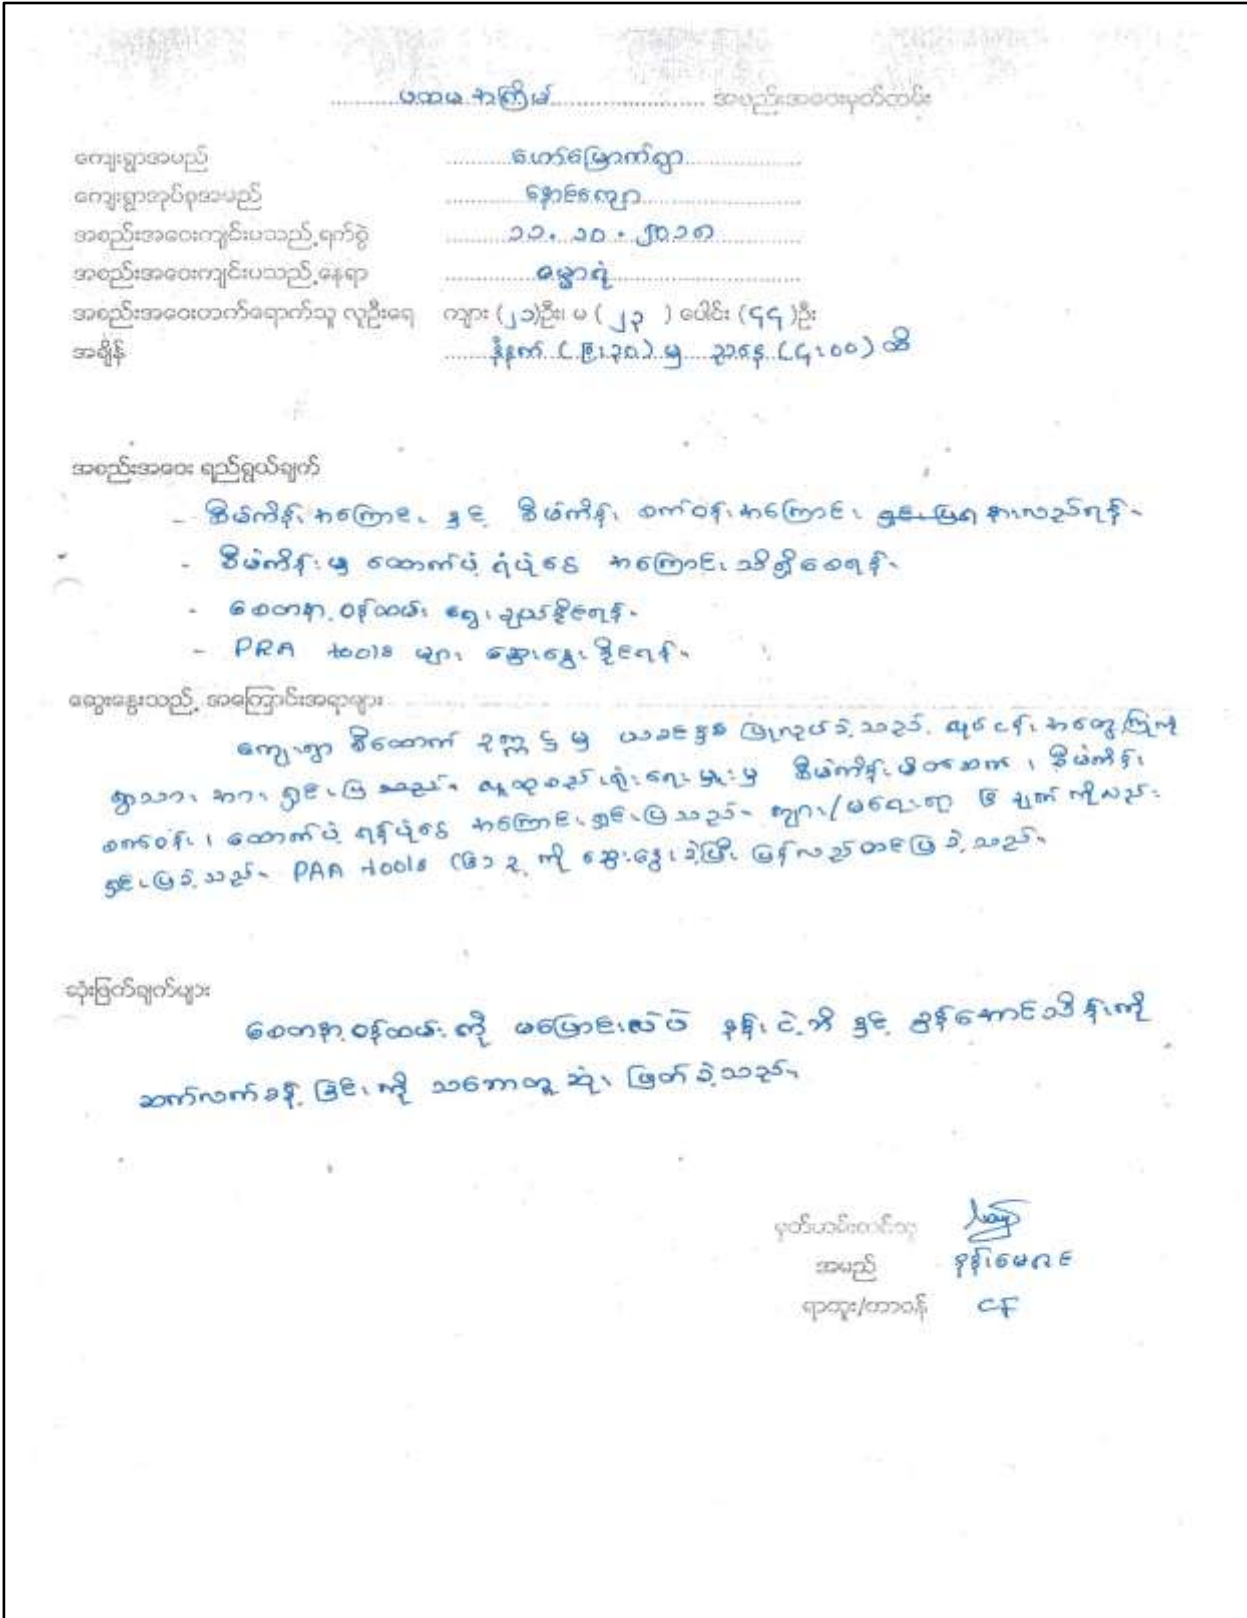 ပထမ အကြိမ် အစည်းအဝေးမှတ်တမ်း
ကျေးရွာအမည် ဟော်မြောက်ရွာ
ကျေးရွာအုပ်စုအမည် နောင်ကျော
အစည်းအဝေးကျင်းပသည့်ရက်စွဲ ၁၁.၁၀.၂၀၁၈
အစည်းအဝေးကျင်းပသည့်နေရာ ဓမ္မာရုံ
အစည်းအဝေးတက်ရောက်သူ လူဦးရေ ကျား (၂၁)ဦး၊ မ (၂၃) ပေါင်း (၄၄)ဦး
အချိန် နံနက် (၉း၃၀) မှ ညနေ (၄း၀၀) ထိ
အစည်းအဝေး ရည်ရွယ်ချက်
- စီမံကိန်းအကြောင်း နှင့် စီမံကိန်း စက်ဝန်းအကြောင်း နားလည်ရန်။
- စီမံကိန်းမှ ထောက်ပံ့ ရံပုံငွေ အကြောင်း သိရှိစေရန်။
- စေတနာ့ဝန်ထမ်း ရွေးချယ်နိုင်ရန်။
- PRA tools များ ဆွေးနွေးနိုင်ရန်။
ဆွေးနွေးသည့် အကြောင်းအရာများ
ကျေးရွာ စီထောက် ဥက္ကဋ္ဌ မှ ယခင်နှစ် ပြုလုပ်ခဲ့သည့် လုပ်ငန်း အတွေ့အကြုံကို
ရွာသား အား ရှင်းပြသည်။ လူထုစည်းရုံးရေးမှူးမှ စီမံကိန်းမိတ်ဆက်၊ စီမံကိန်း
စက်ဝန်း၊ ထောက်ပံ့ ရန်ပုံငွေ အကြောင်းရှင်းပြသည်။ ကျား/မရေးရာ ၆ ချက် ကိုလည်း
ရှင်းပြခဲ့သည်။ PRA tools (၆) ခု ကို ဆွေးနွေးခဲ့ပြီး ပြန်လည်တင်ပြခဲ့သည်။
ဆုံးဖြတ်ချက်များ
စေတနာ့ဝန်ထမ်းကို မပြောင်းလဲပဲ နန်းငဲ့ဘီ နှင့် ထွန်အောင်သိန်းကို
ဆက်လက်ခန့်ခြင်းကို သဘောတူ ဆုံးဖြတ်ခဲ့သည်။
မှတ်တမ်းတင်သူ
အမည် နန်းမေ
ရာထူး/တာဝန် CF